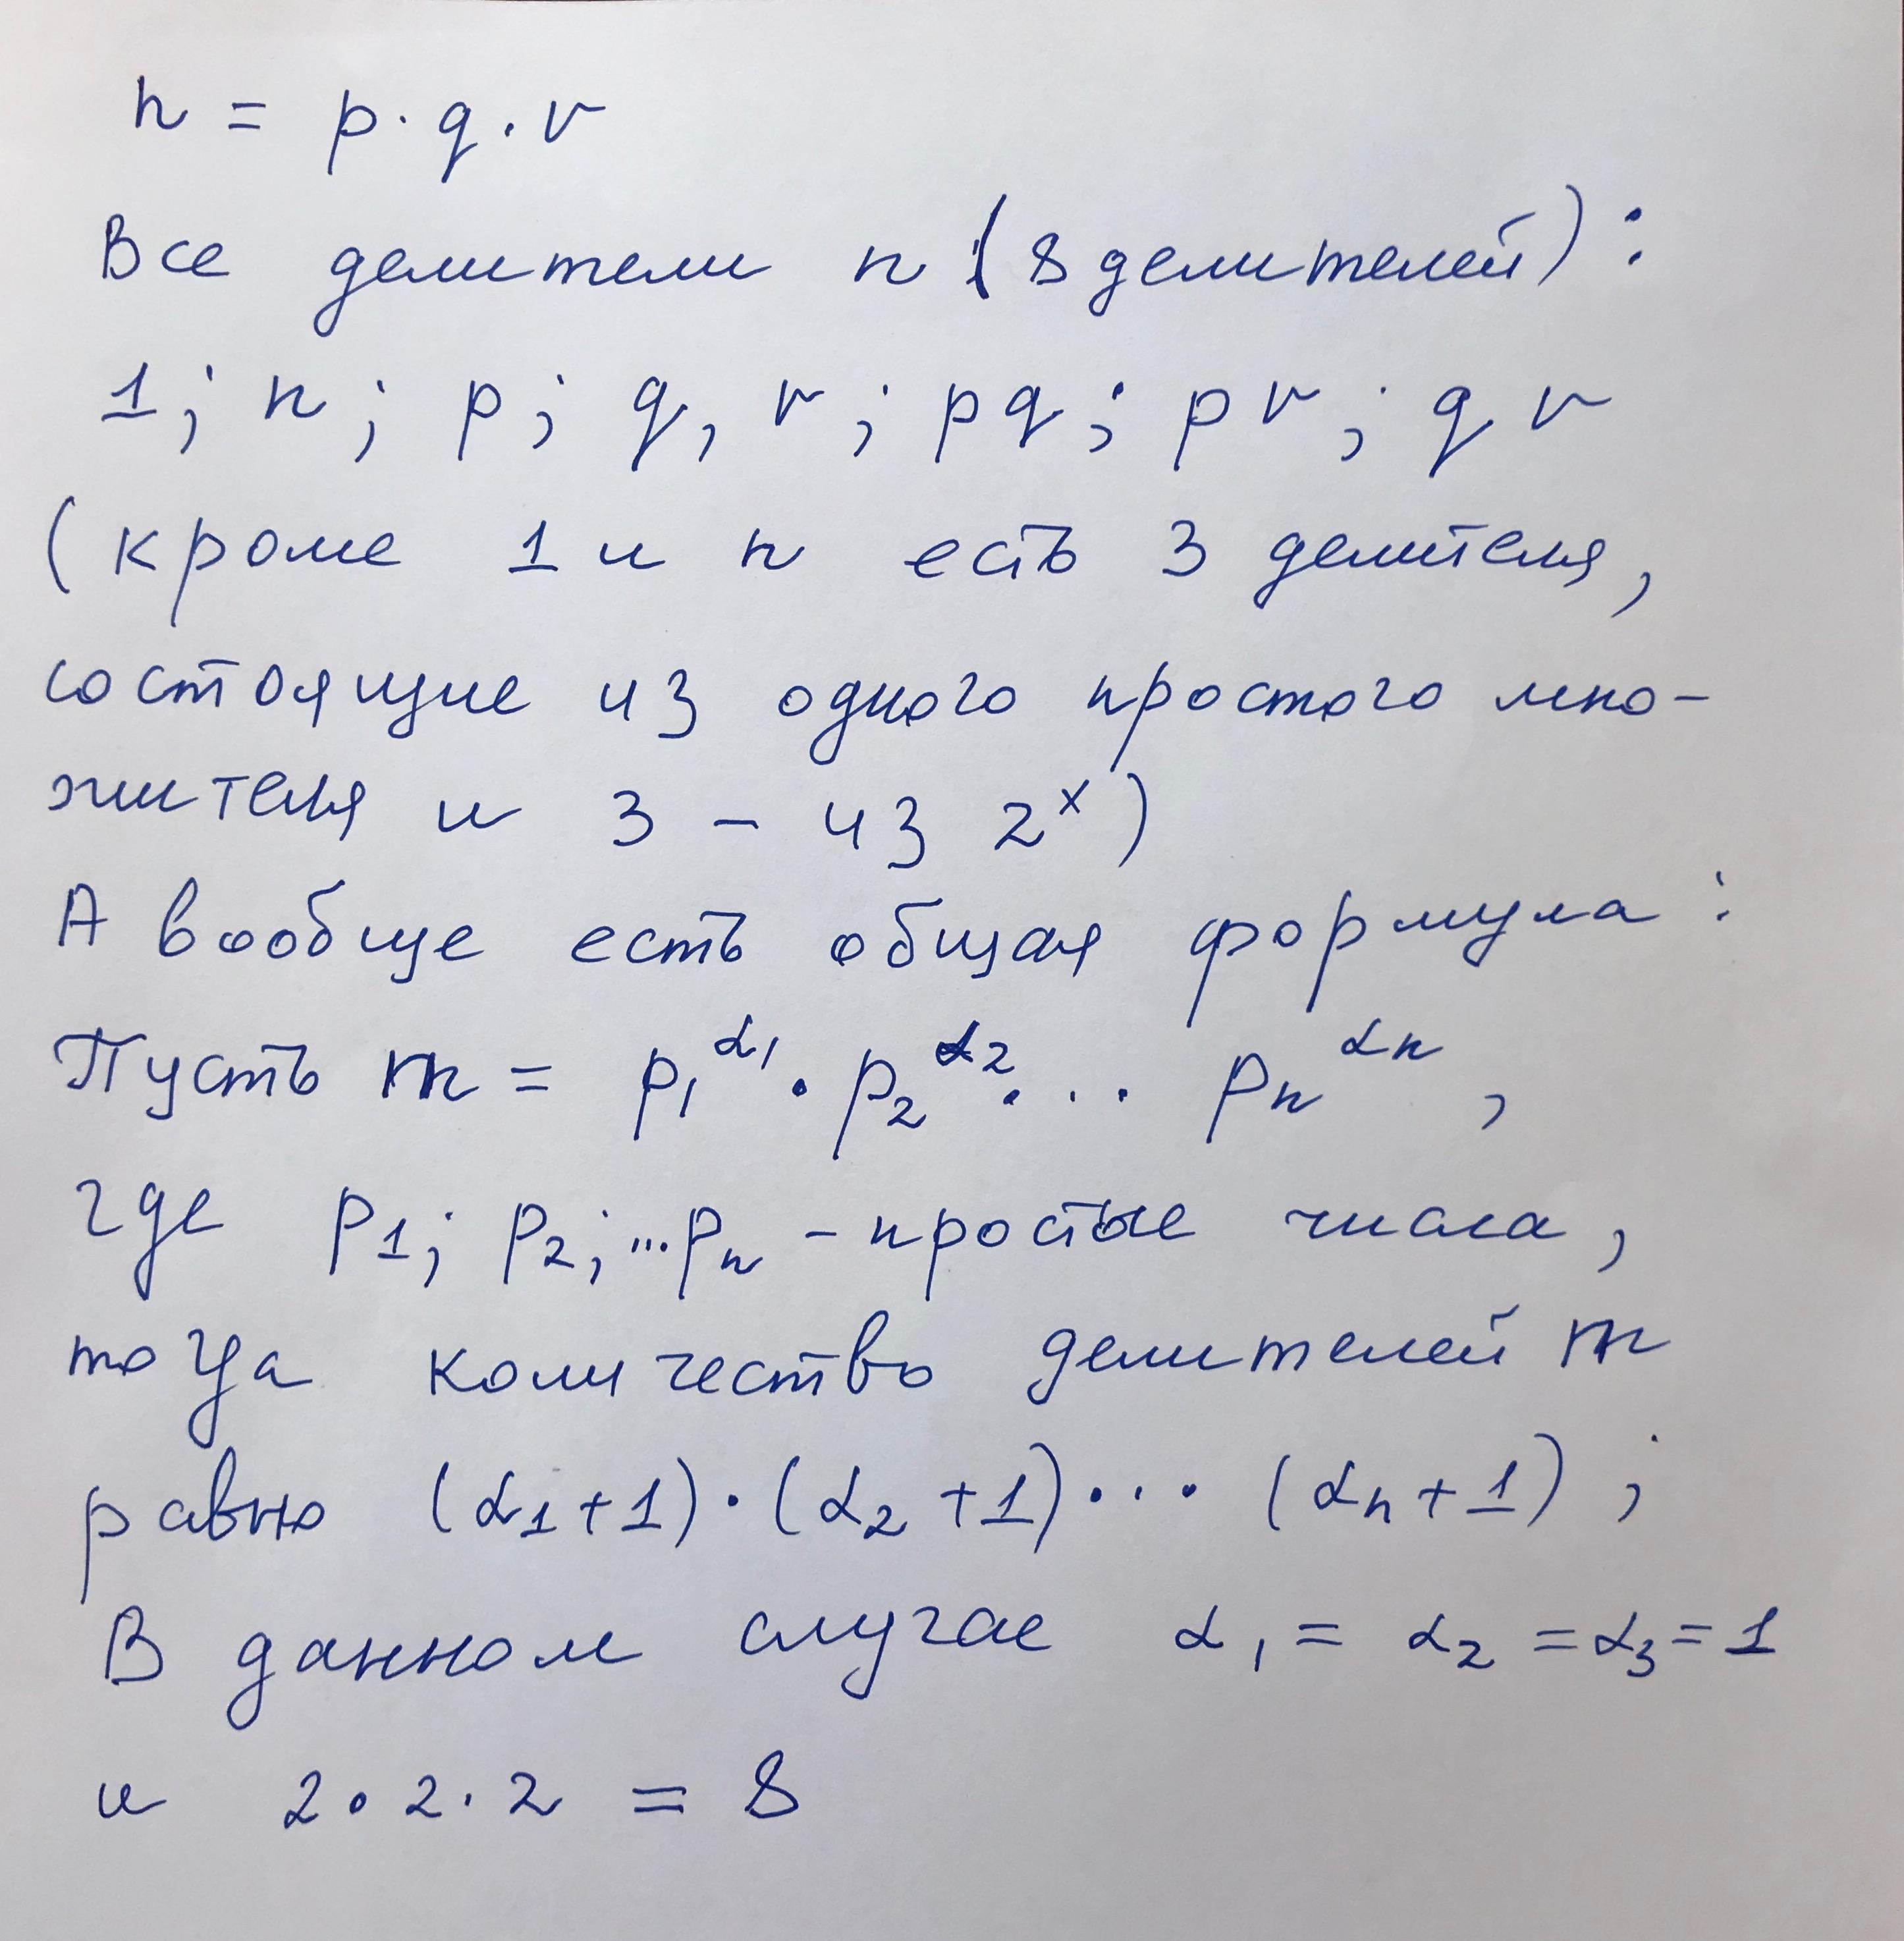 n = p · q · r
Все делители n (8 делителей):
1; n; p; q, r; pq; pr; qr
(кроме 1 и n есть 3 делителя,
состоящие из одного простого мно-
жителя и 3 - из 2ˣ)
А вообще есть общая формула:
Пусть m = p₁^α₁ · p₂^α₂ · ... pₙ^αₙ,
где p₁; p₂; ... pₙ - простые числа,
тогда количество делителей m
равно (α₁+1) · (α₂+1) · ... (αₙ+1);
В данном случае α₁ = α₂ = α₃ = 1
и 2 · 2 · 2 = 8